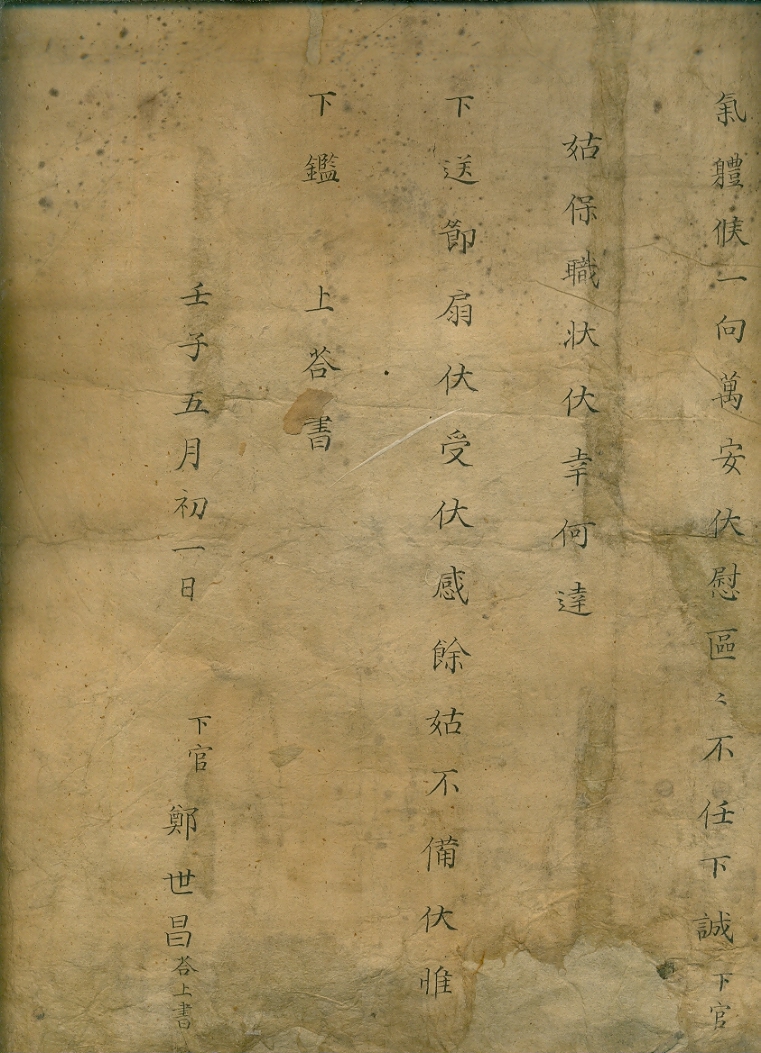 氣體候一向萬安伏慰區〻不任下誠下官
姑保職狀伏幸何達
下送節扇伏受伏感餘姑不備伏惟
下鑑 上答書
壬子五月初一日 下官 鄭世昌 答上書